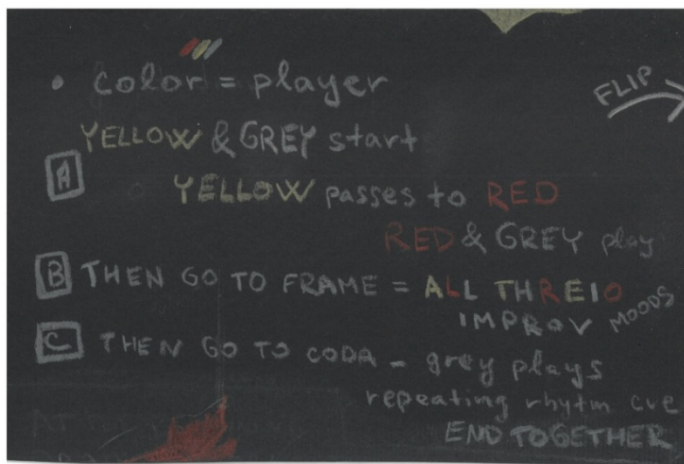 • color = player
FLIP
YELLOW & GREY start
A
YELLOW passes to RED
RED & GREY play
B THEN GO TO FRAME = ALL THREIO
IMPROV MOODS
C THEN GO TO CODA - grey plays
repeating rhytm cue
END TOGETHER